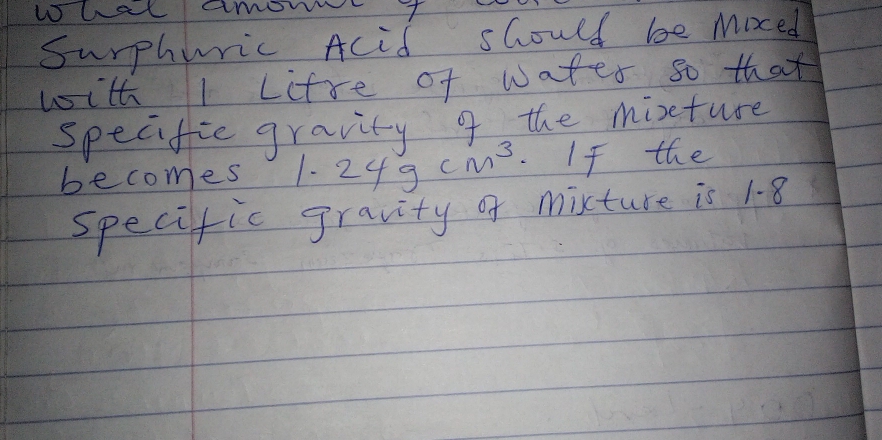 what amount of
Surphuric Acid should be Mixed
with 1 Litre of water so that
specific gravity of the mixture
becomes 1.24g cm³. If the
specific gravity of mixture is 1.8